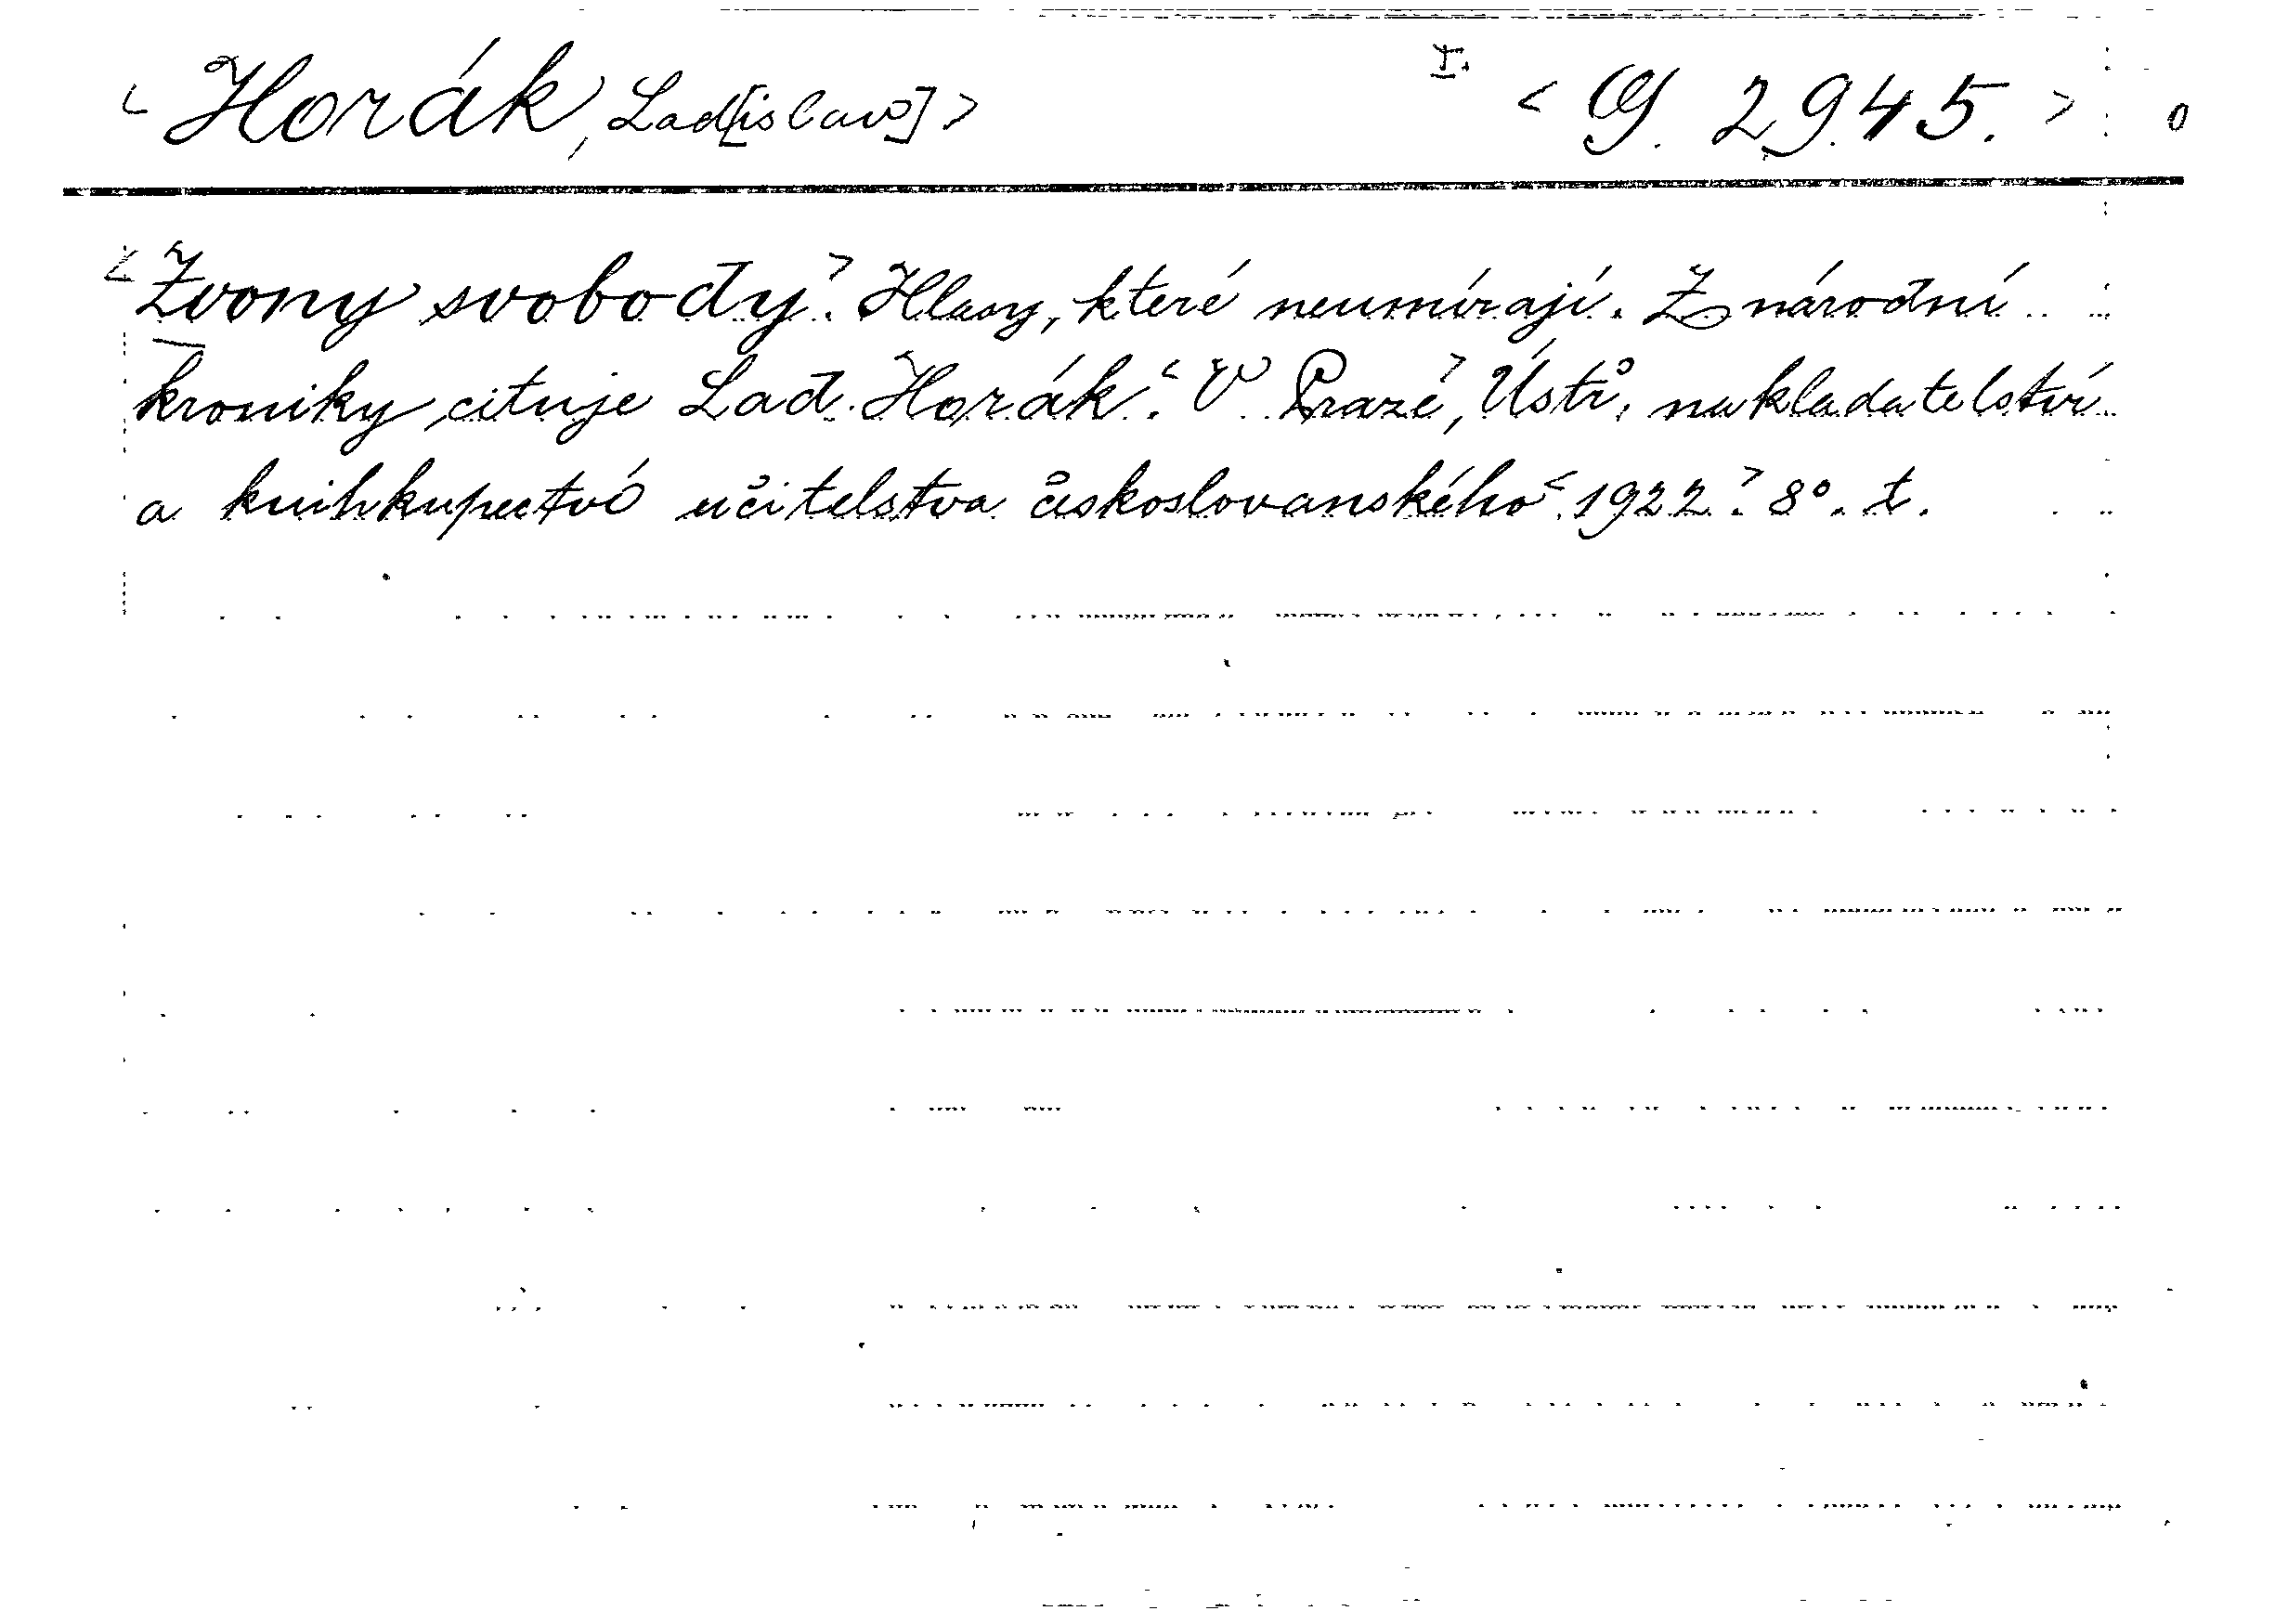 < Horák, Lad[islav] > I. < G. 2945. > 0
< Zvony svobody >. Hlasy, které neumírají. Z národní
kroniky cituje Lad. Horák. < V Praze >, Úst. nakladatelství
a knihkupectví učitelstva českoslovanského < . 1922 >. 8°. t.